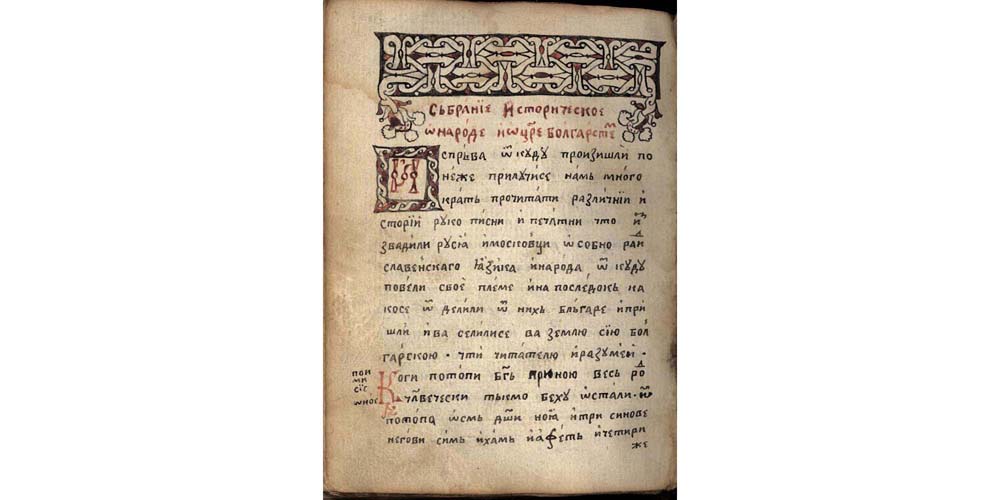 Събранїе Историческое
ѿ народе и ѡ цр҃е Болгарстѣ
Испръва ѿ кꙋдꙋ произишли по
неже прилꙋчисе намъ много
кратъ прочитати различнїи и
сторїи рꙋко писни и печатни что и
звадили рꙋсїа и московци ѡсобно ра
славенскаго ꙗзика и народа ѿ кꙋдꙋ
повели свое племе и на последокъ ка
косе ѿ делили ѿ нихъ бльгаре и при
шли и ва селилисе ва землю сїю бол
гарскою · чти читателю и разꙋмеи ·
Коги потопи бг҃ъ при ною весь ро
чл҃вечески тькмо бехꙋ ѡстали · ѿ
потопа ѡсмь дш҃и ноꙗ и три синове
негови симь и хамь и афеть и четири
же
пои
ми
сїе